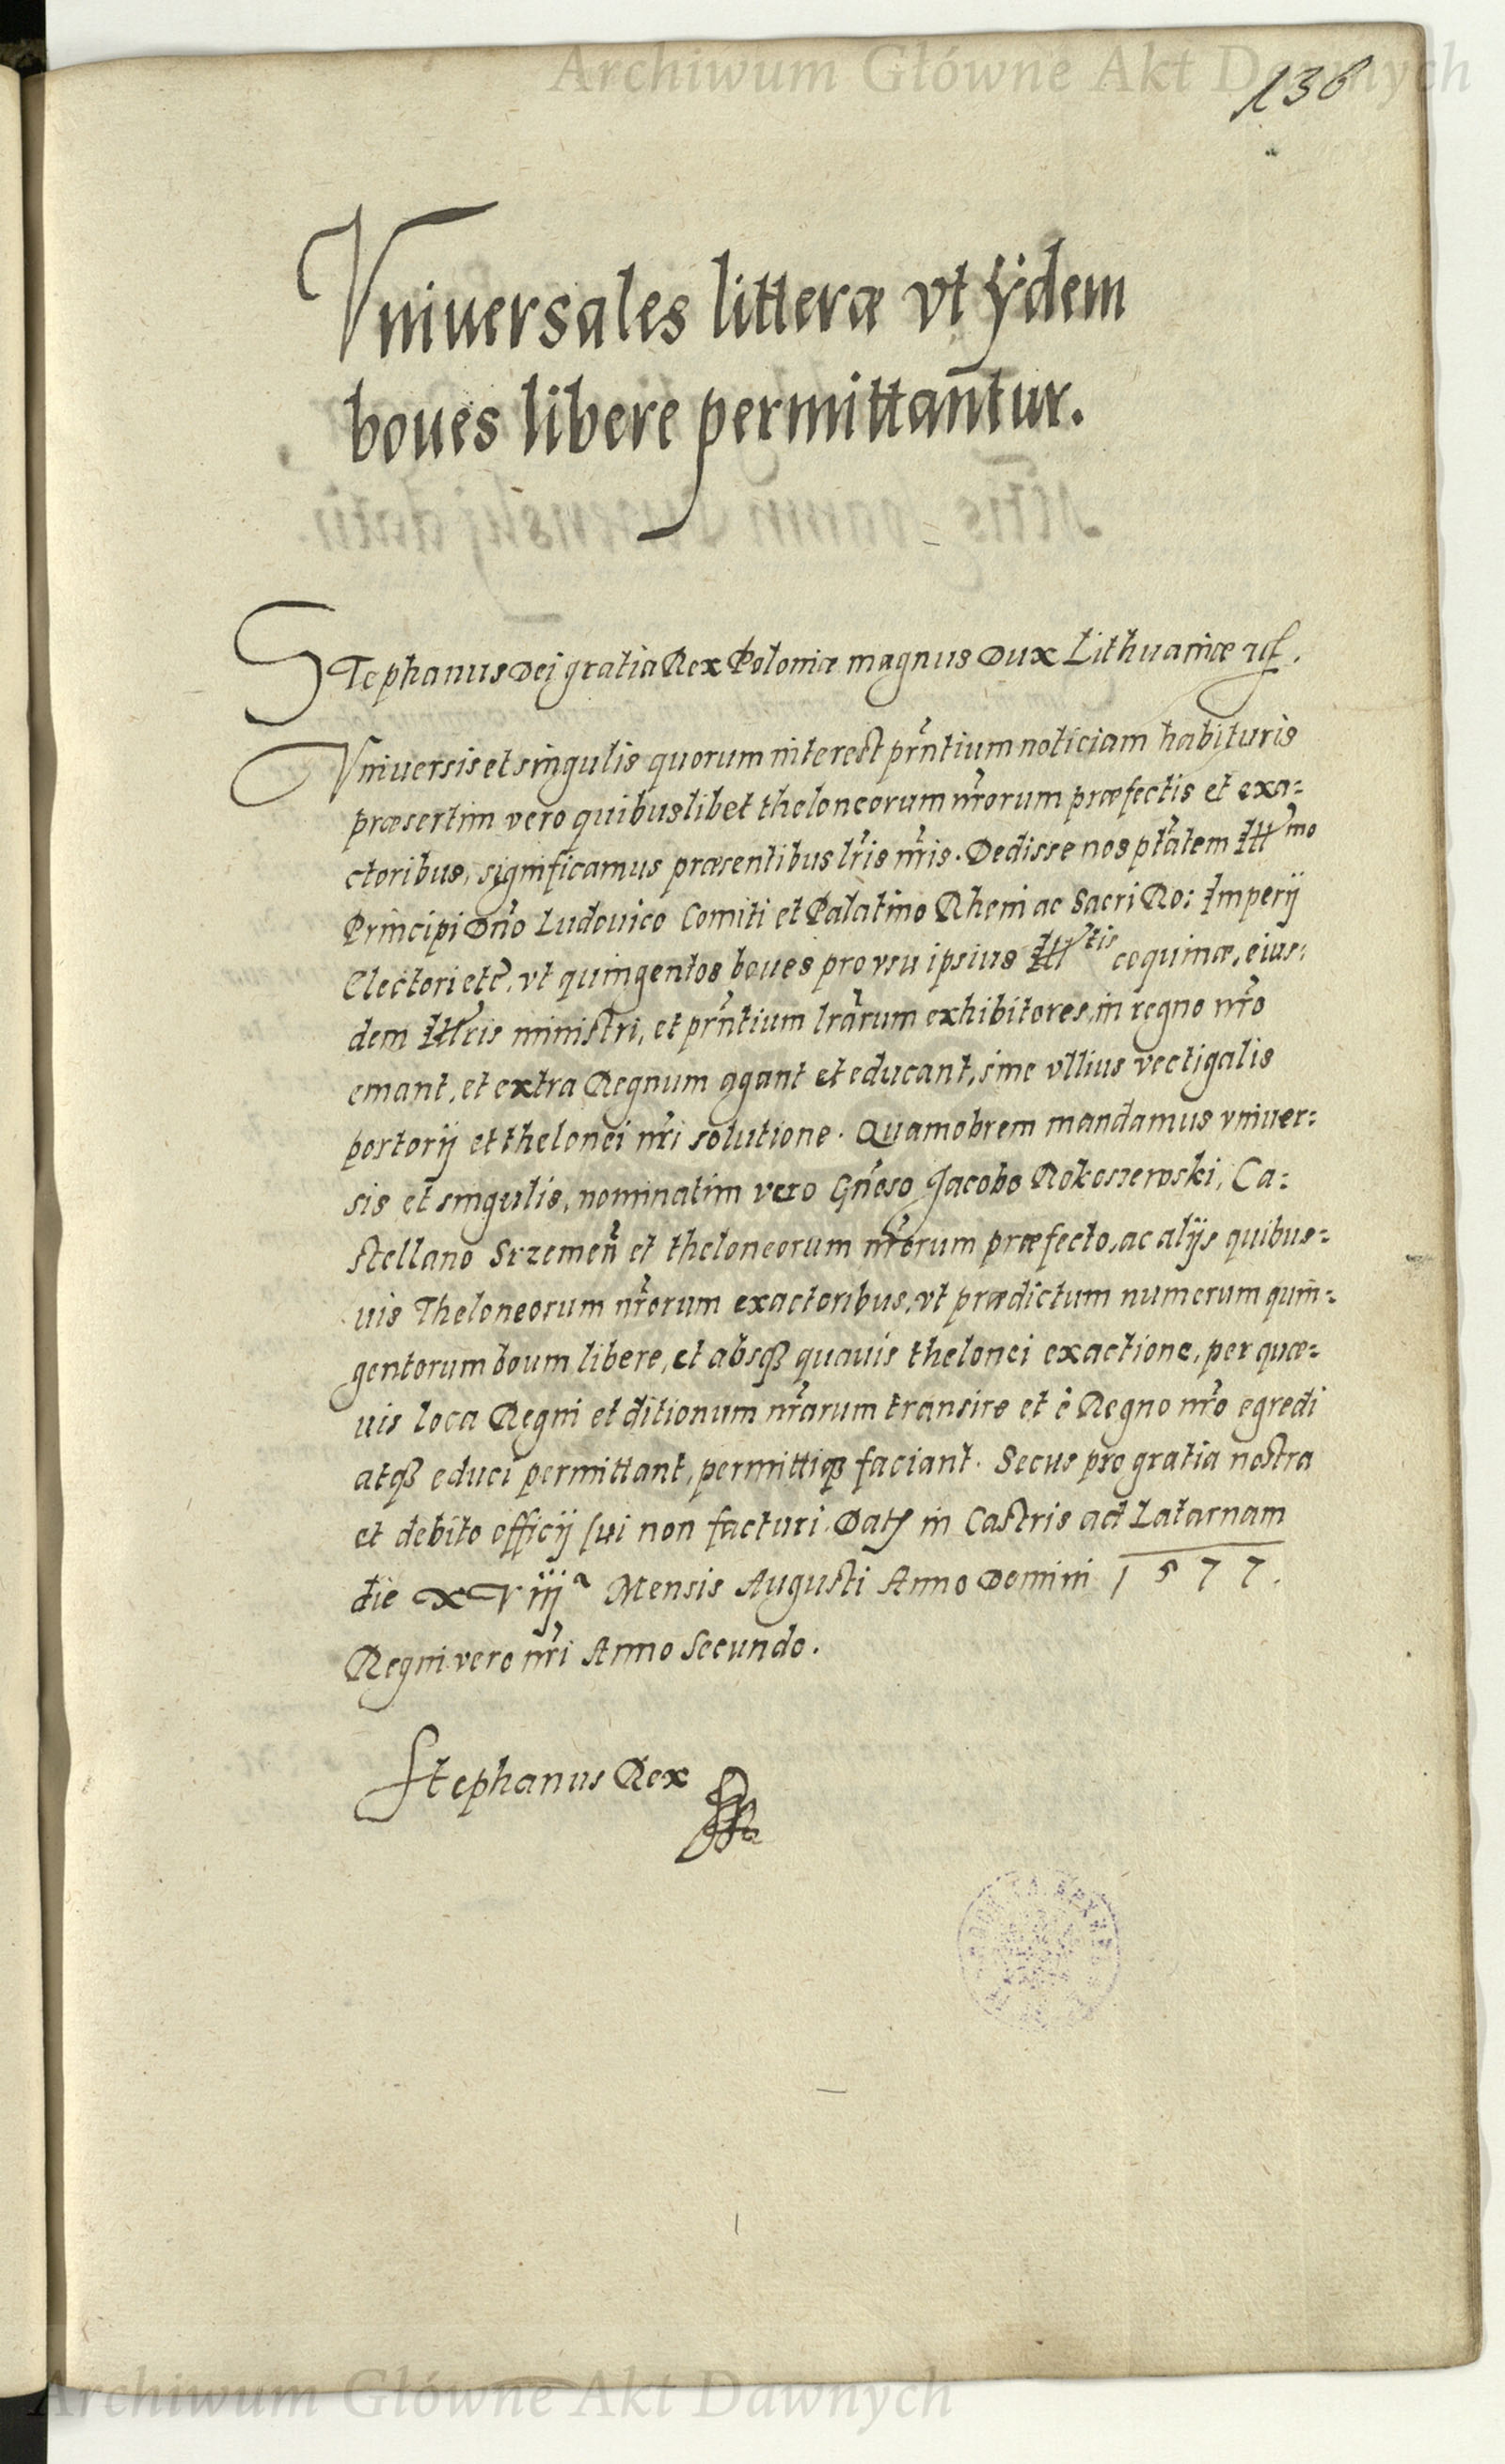 Archiwum Główne Akt Dawnych
136
Vniuersales litteræ vt ijdem
boues libere permittantur.
Stephanus Dei gratia Rex Poloniæ magnus Dux Lithuaniæ
Vniuersis et singulis quorum interest pr̃ntium noticiam habituris
præsertim vero quibuslibet theloneorum nr̃orum præfectis et exa=
ctoribus, significamus præsentibus lr̃is nr̃is. Dedisse nos ptãtem Ill^mo
Principi Dño Ludouico Comiti et Palatino Rheni ac Sacri Ro: Imperij
Electori etc̃, vt quingentos boues pro vsu ipsius Ill^tis coquinæ, eius=
dem Ill̃ris ministri, et pr̃ntium lrãrum exhibitores, in regno nr̃o
emant, et extra Regnum agant et educant, sine vllius vectigalis
portorij et thelonei nr̃i solutione. Quamobrem mandamus vniuer=
sis et singulis, nominatim vero Gñoso Jacobo Rokossewski, Ca=
stellano Srzemeñ et theloneorum nr̃orum præfecto, ac alijs quibus=
uis Theloneorum nr̃orum exactoribus, vt prædictum numerum quin=
gentorum boum libere, et absq3 quauis thelonei exactione, per quæ=
uis loca Regni et ditionum nr̃arum transire et è Regno nr̃o egredi
atq3 educi permittant, permittiq3 faciant. Secus pro gratia nostra
et debito officij sui non facturi. Dat in Castris ad Latarnam
die XViij^a Mensis Augusti Anno Domini 1577.
Regni vero nr̃i Anno Secundo.
Stephanus Rex
Archiwum Główne Akt Dawnych